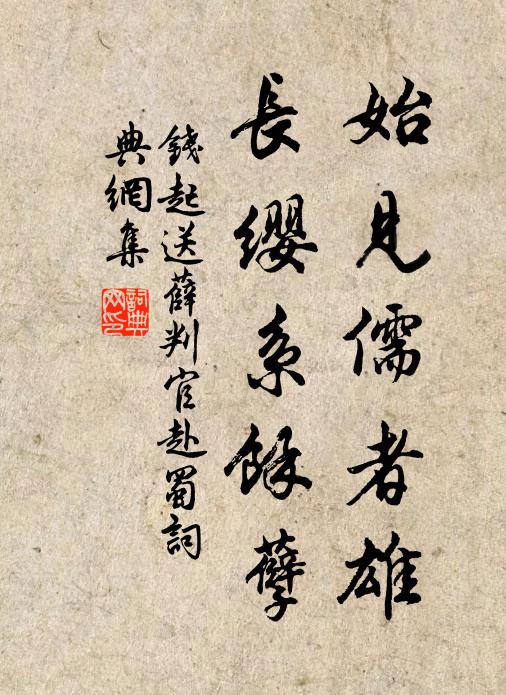 始見儒者雄
長纓系餘孽
錢起送薛判官赴蜀詞
典網集
詞典
網印